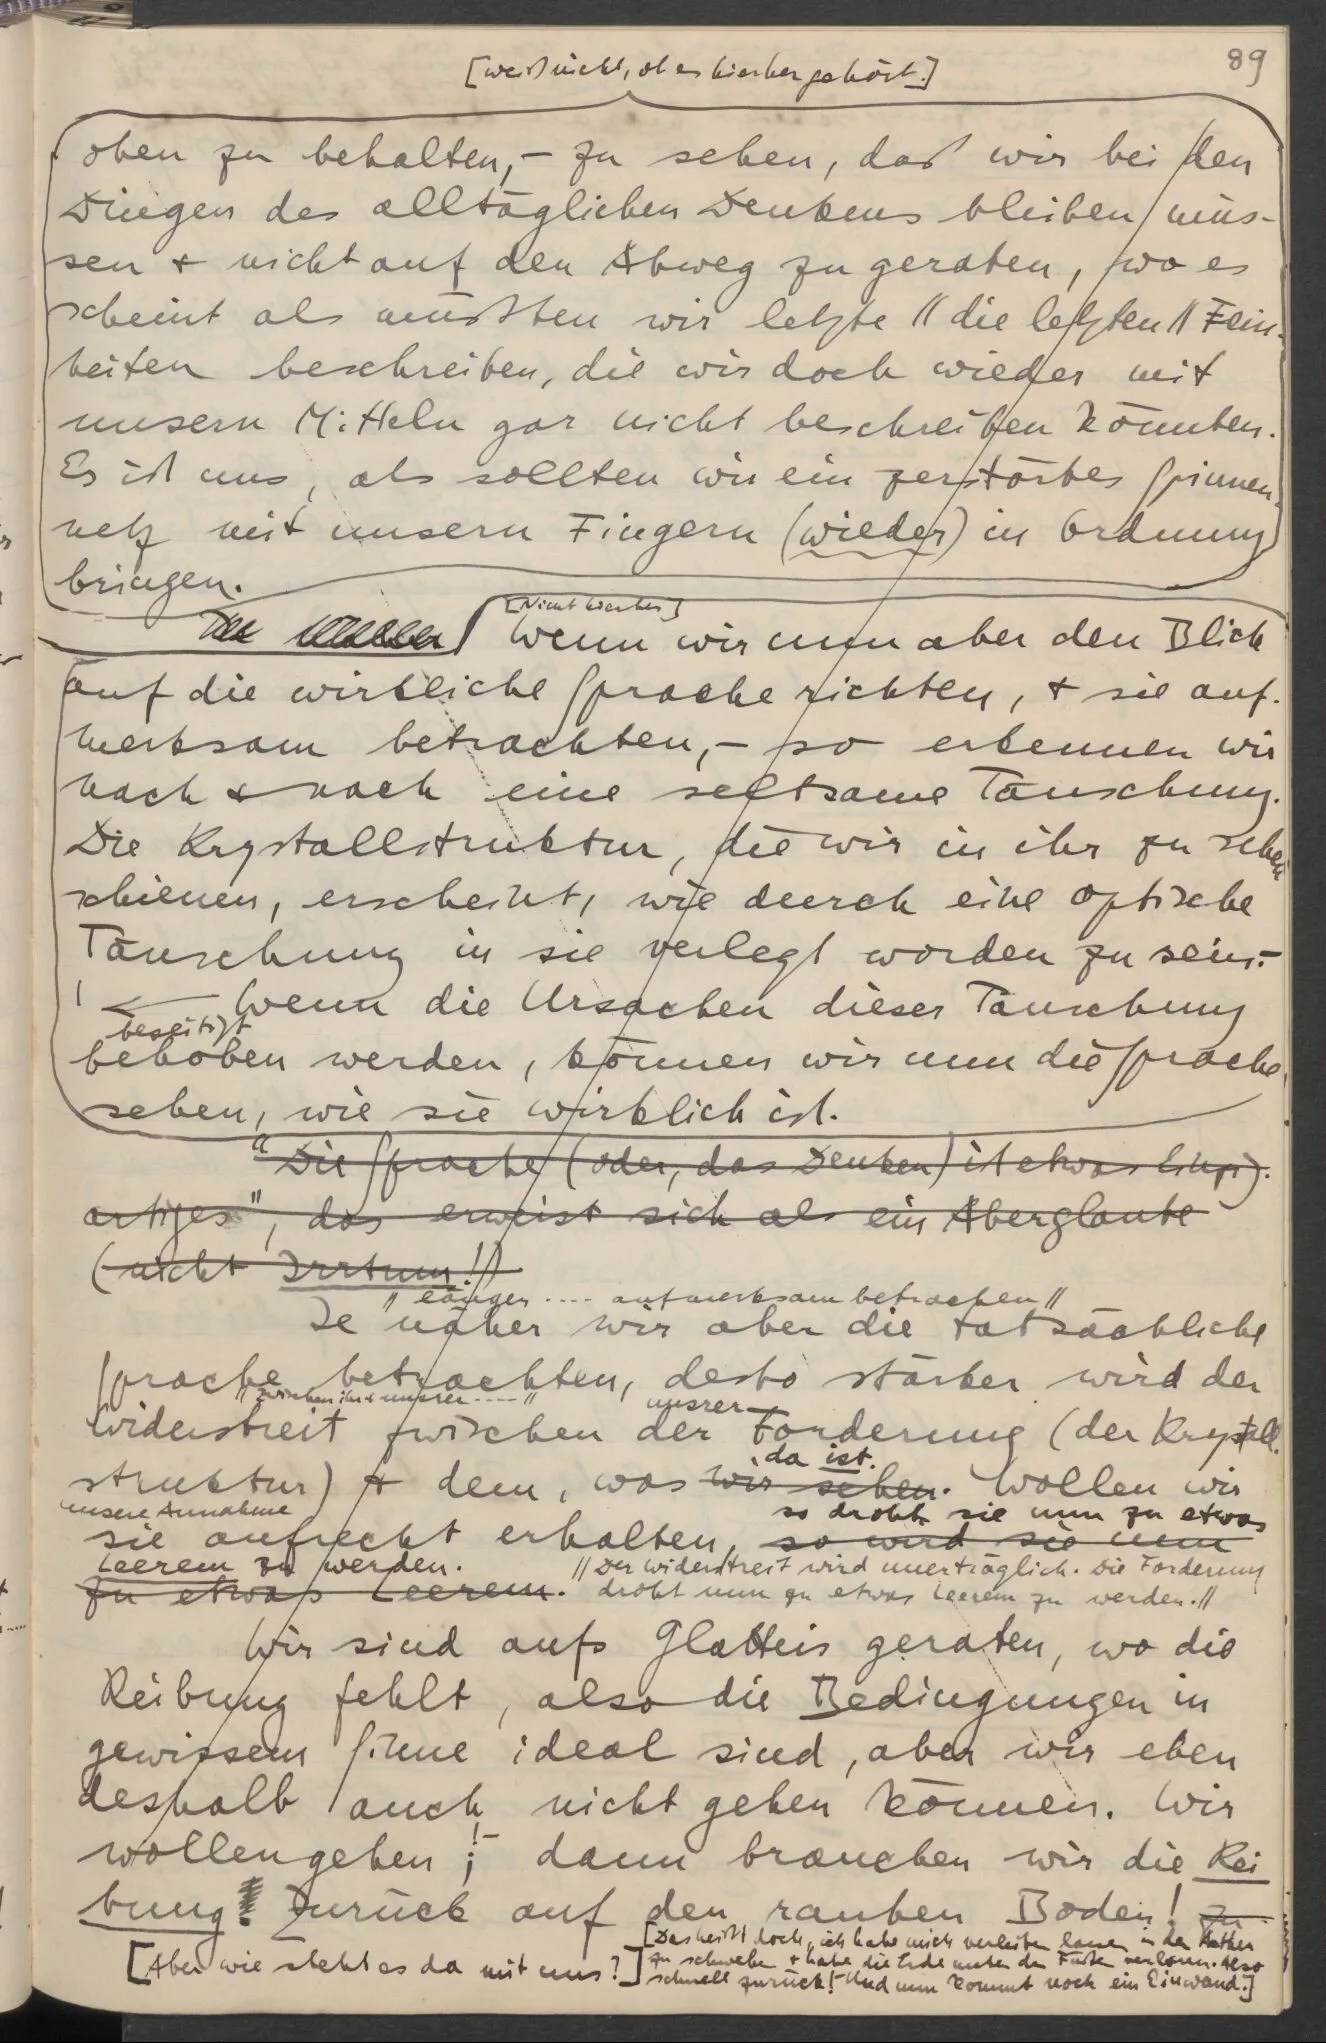 89
[weiß nicht, ob es hierher gehört.]
oben zu behalten, – zu sehen, daß wir bei den
Dingen des alltäglichen Denkens bleiben müs-
sen + nicht auf den Abweg zu geraten, wo es
scheint als müßten wir letzte // die letzten // Fein-
heiten beschreiben, die wir doch wieder mit
unsern Mitteln gar nicht beschreiben könnten.
Es ist uns, als sollten wir ein zerstörtes Spinnen-
netz mit unsern Fingern (wieder) in Ordnung
bringen.
[Nicht hierher]
Der Wenn wir nun aber den Blick
auf die wirkliche Sprache richten, + sie auf-
merksam betrachten, – so erkennen wir
nach & nach eine seltsame Täuschung.
Die Krystallstruktur, die wir in ihr zu sehen
schienen, erscheint, wie durch eine optische
Täuschung in sie verlegt worden zu sein. –
Wenn die Ursachen dieser Täuschung
beseitigt
behoben werden, können wir nun die Sprache
sehen, wie sie wirklich ist.
"Die Sprache (oder, das Denken) ist etwas Einzig-
artiges", das erweist sich als ein Aberglaube
(nicht Irrtum!)
// länger .... aufmerksam betrachten //
Je näher wir aber die tatsächliche
Sprache betrachten, desto stärker wird der
// zwischen ihr & unsrer .... // unsrer
Widerstreit zwischen der Forderung (der Krystall-
struktur) + dem, was wir sehen. da ist. Wollen wir
unsere Annahme so droht sie nun zu etwas
sie aufrecht erhalten, so wird sie nun
Leerem zu werden. // Der Widerstreit wird unerträglich. Die Forderung
zu etwas Leerem. droht nun zu etwas Leerem zu werden. //
Wir sind aufs Glatteis geraten, wo die
Reibung fehlt, also die Bedingungen in
gewissem Sinne ideal sind, aber wir eben
deshalb auch nicht gehen können. Wir
wollen gehen; !– dann brauchen wir die Rei
bung! Zurück auf den rauhen Boden! Zu
[Das heißt doch, ich habe mich verleiten lassen in den Aether
[Aber wie steht es da mit uns?] zu schweben + habe die Erde unter den Füßen verloren. Also
schnell zurück! – Und nun kommt noch ein Einwand.]